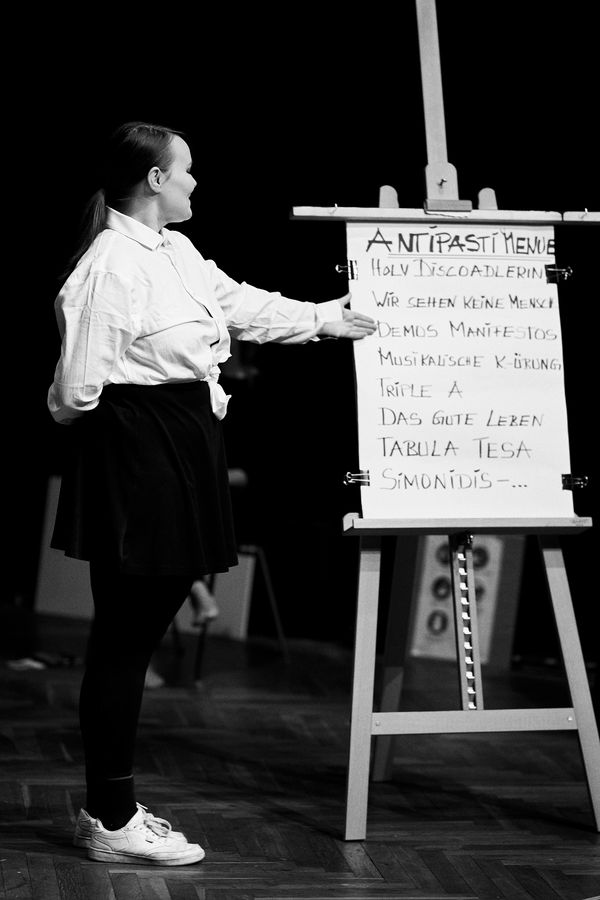 ANTIPASTI MENUE
HOLV DISCOADLERIN
WIR SEHEN KEINE MENSCH
DEMOS MANIFESTOS
MUSIKALISCHE K-ÖRUNG
TRIPLE A
DAS GUTE LEBEN
TABULA TESA
SIMONIDIS-...